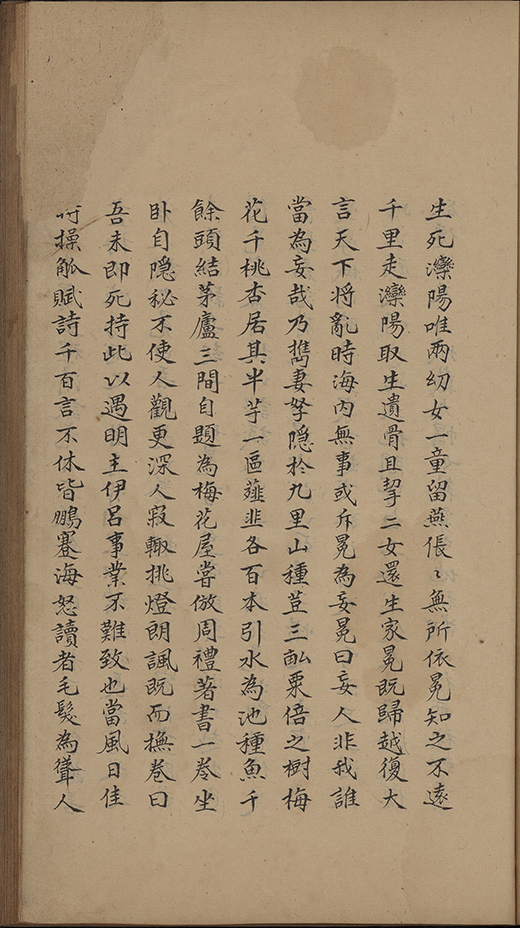 生死灤陽唯兩幼女一童留燕倀〻無所依冕知之不遠
千里走灤陽取生遺骨且挈二女還生家冕既歸越復大
言天下将亂時海內無事或斥冕為妄冕曰妄人非我誰
當為妄哉乃擕妻孥隠於九里山種荳三畝粟倍之樹梅
花千桃杏居其半芋一區薤韭各百本引水為池種魚千
餘頭結茅廬三間自題為梅花屋嘗倣周禮著書一卷坐
卧自隠秘不使人觀更深人寂輙挑燈朗諷既而撫卷曰
吾未即死持此以遇明主伊呂事業不難致也當風日佳
時操觚賦詩千百言不休皆鵬騫海怒讀者毛髮為聳人